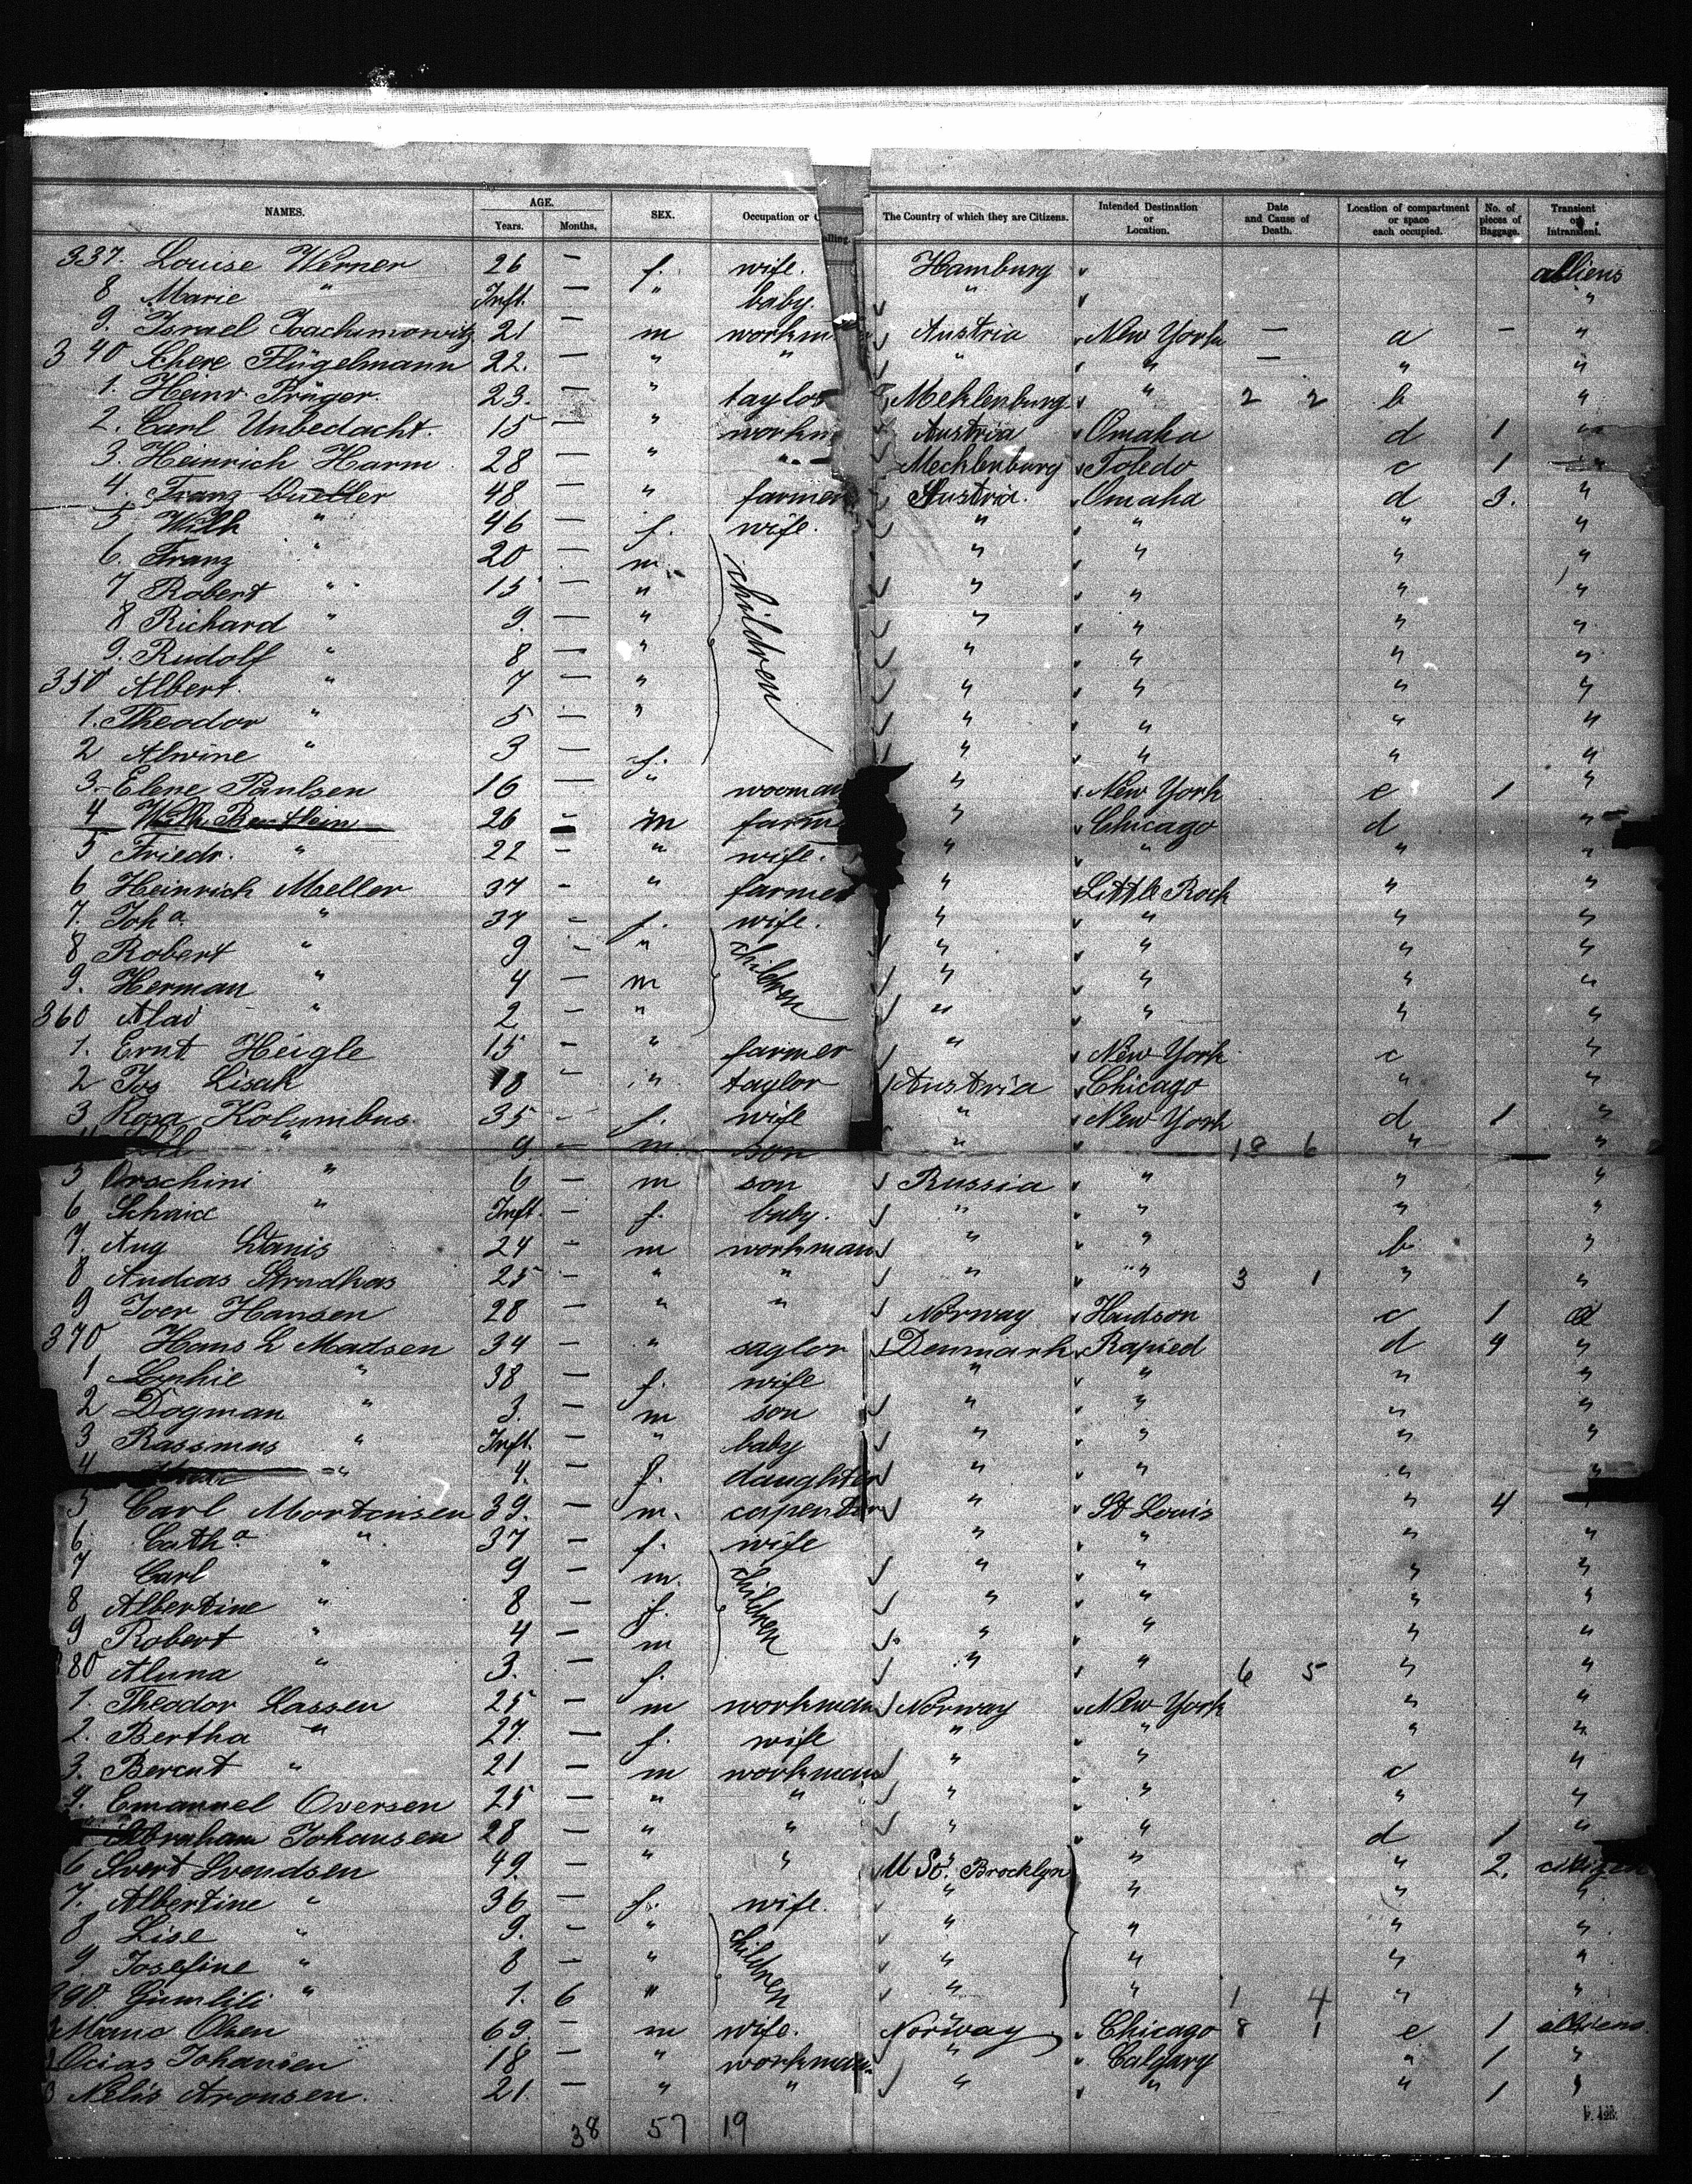 NAMES. AGE. Years. Months. SEX. Occupation or Calling. The Country of which they are Citizens. Intended Destination or Location. Date and Cause of Death. Location of compartment or space each occupied. No. of pieces of Baggage. Transient or Intransient.
337. Louise Werner 26 — f. wife. Hamburg aliens
8 Marie " Inft. — " baby. " "
9. Israel Joachimowitz 21 — m workm Austria New York — a — "
340 Schere Flügelmann 22. — " " " " — " "
1. Heinr. Prüger. 23. — " taylor Mecklenburg " 2 2 b "
2. Carl Unbedacht. 15 — " workm Austria Omaha d 1 "
3. Heinrich Harm 28 — " " Mecklenburg Toledo c 1 "
4. Franz 48 — " farmer Austria. Omaha d 3. "
5 Wilh " 46 — f. wife. " " " "
6. Franz " 20 — m children " " " "
7 Robert " 15 — " " " " "
8 Richard " 9. — " " " " "
9. Rudolf " 8 — " " " " "
350 Albert. " 7 — " " " " "
1. Theodor " 5 — " " " " "
2 Alwine " 3 — f. " " " "
3. Elene Paulsen 16 — " wooman " New York e 1 "
4 Wilh. 26 — m farm " Chicago d "
5 Friedr. " 22 — " wife. " " " "
6 Heinrich Meller 37 - " farmer " Little Rock " "
7. Joh a. " 37 - f. wife. " " " "
8 Robert " 9 - " children " " " "
9. Herman " 4 — m " " " "
360 " 2 — " " " " "
1. Ernt Heigle 15 — " farmer " New York c "
2 Jos Lisak 18 - " taylor Austria Chicago " "
3 Rosa Kolumbus. 35 - f. wife " New York d 1 "
4 " 9 - m. son " 18 6 " "
5 Orschini " 6 — m son Russia " " "
6 " Inft. - f. baby. " " " "
7. Aug Stanis 24 - m workman " " b "
8 Andreas 25 - " " " " 3 1 " "
9 Iver Hansen 28 — " " Norway Hudson c 1 a
370 Hans L Madsen 34 — " saylor Denmark Rapied d 4 "
1 Sophie " 38 — f. wife " " " "
2 Dogman " 3. — m son " " " "
3 Rassmus " Inft. — " baby " " " "
4 " 4. — f. daughter " " " "
5 Carl Mortensen 39. — m. capenter " St Louis " 4 "
6. Cath a. " 37 — f. wife " " " "
7 Carl " 9 — m. children " " " "
8 Albertine " 8 — f. " " " "
9 Robert " 4 — m " " " "
380 Aluna " 3. — f. " " 6 5 " "
1. Theodor Lassen 25 — m workman Norway New York " "
2. Bertha " 27. — f. wife " " " "
3. Berent " 21 — m workman " " c "
4. Emanuel Oversen 25 — " " " " " "
Abraham Johansen 28 — " " " " d 1 "
6 Svert Svendsen 49. — " " U St. Brocklyn " " 2. citizen
7. Albertine " 36 — f. wife. " " " "
8 Lise " 9. — " children " " " "
9 Josefine " 8 — " " " " "
390. Gumlili " 1. 6 " " " 1 4 " "
Olsen 69. — m wife. Norway Chicago 8 1 e 1 aliens.
Johansen 18 — " workman. " Calgary " 1 "
3 Nelis Aronsen. 21. — " " " " " 1 "
38 57 19